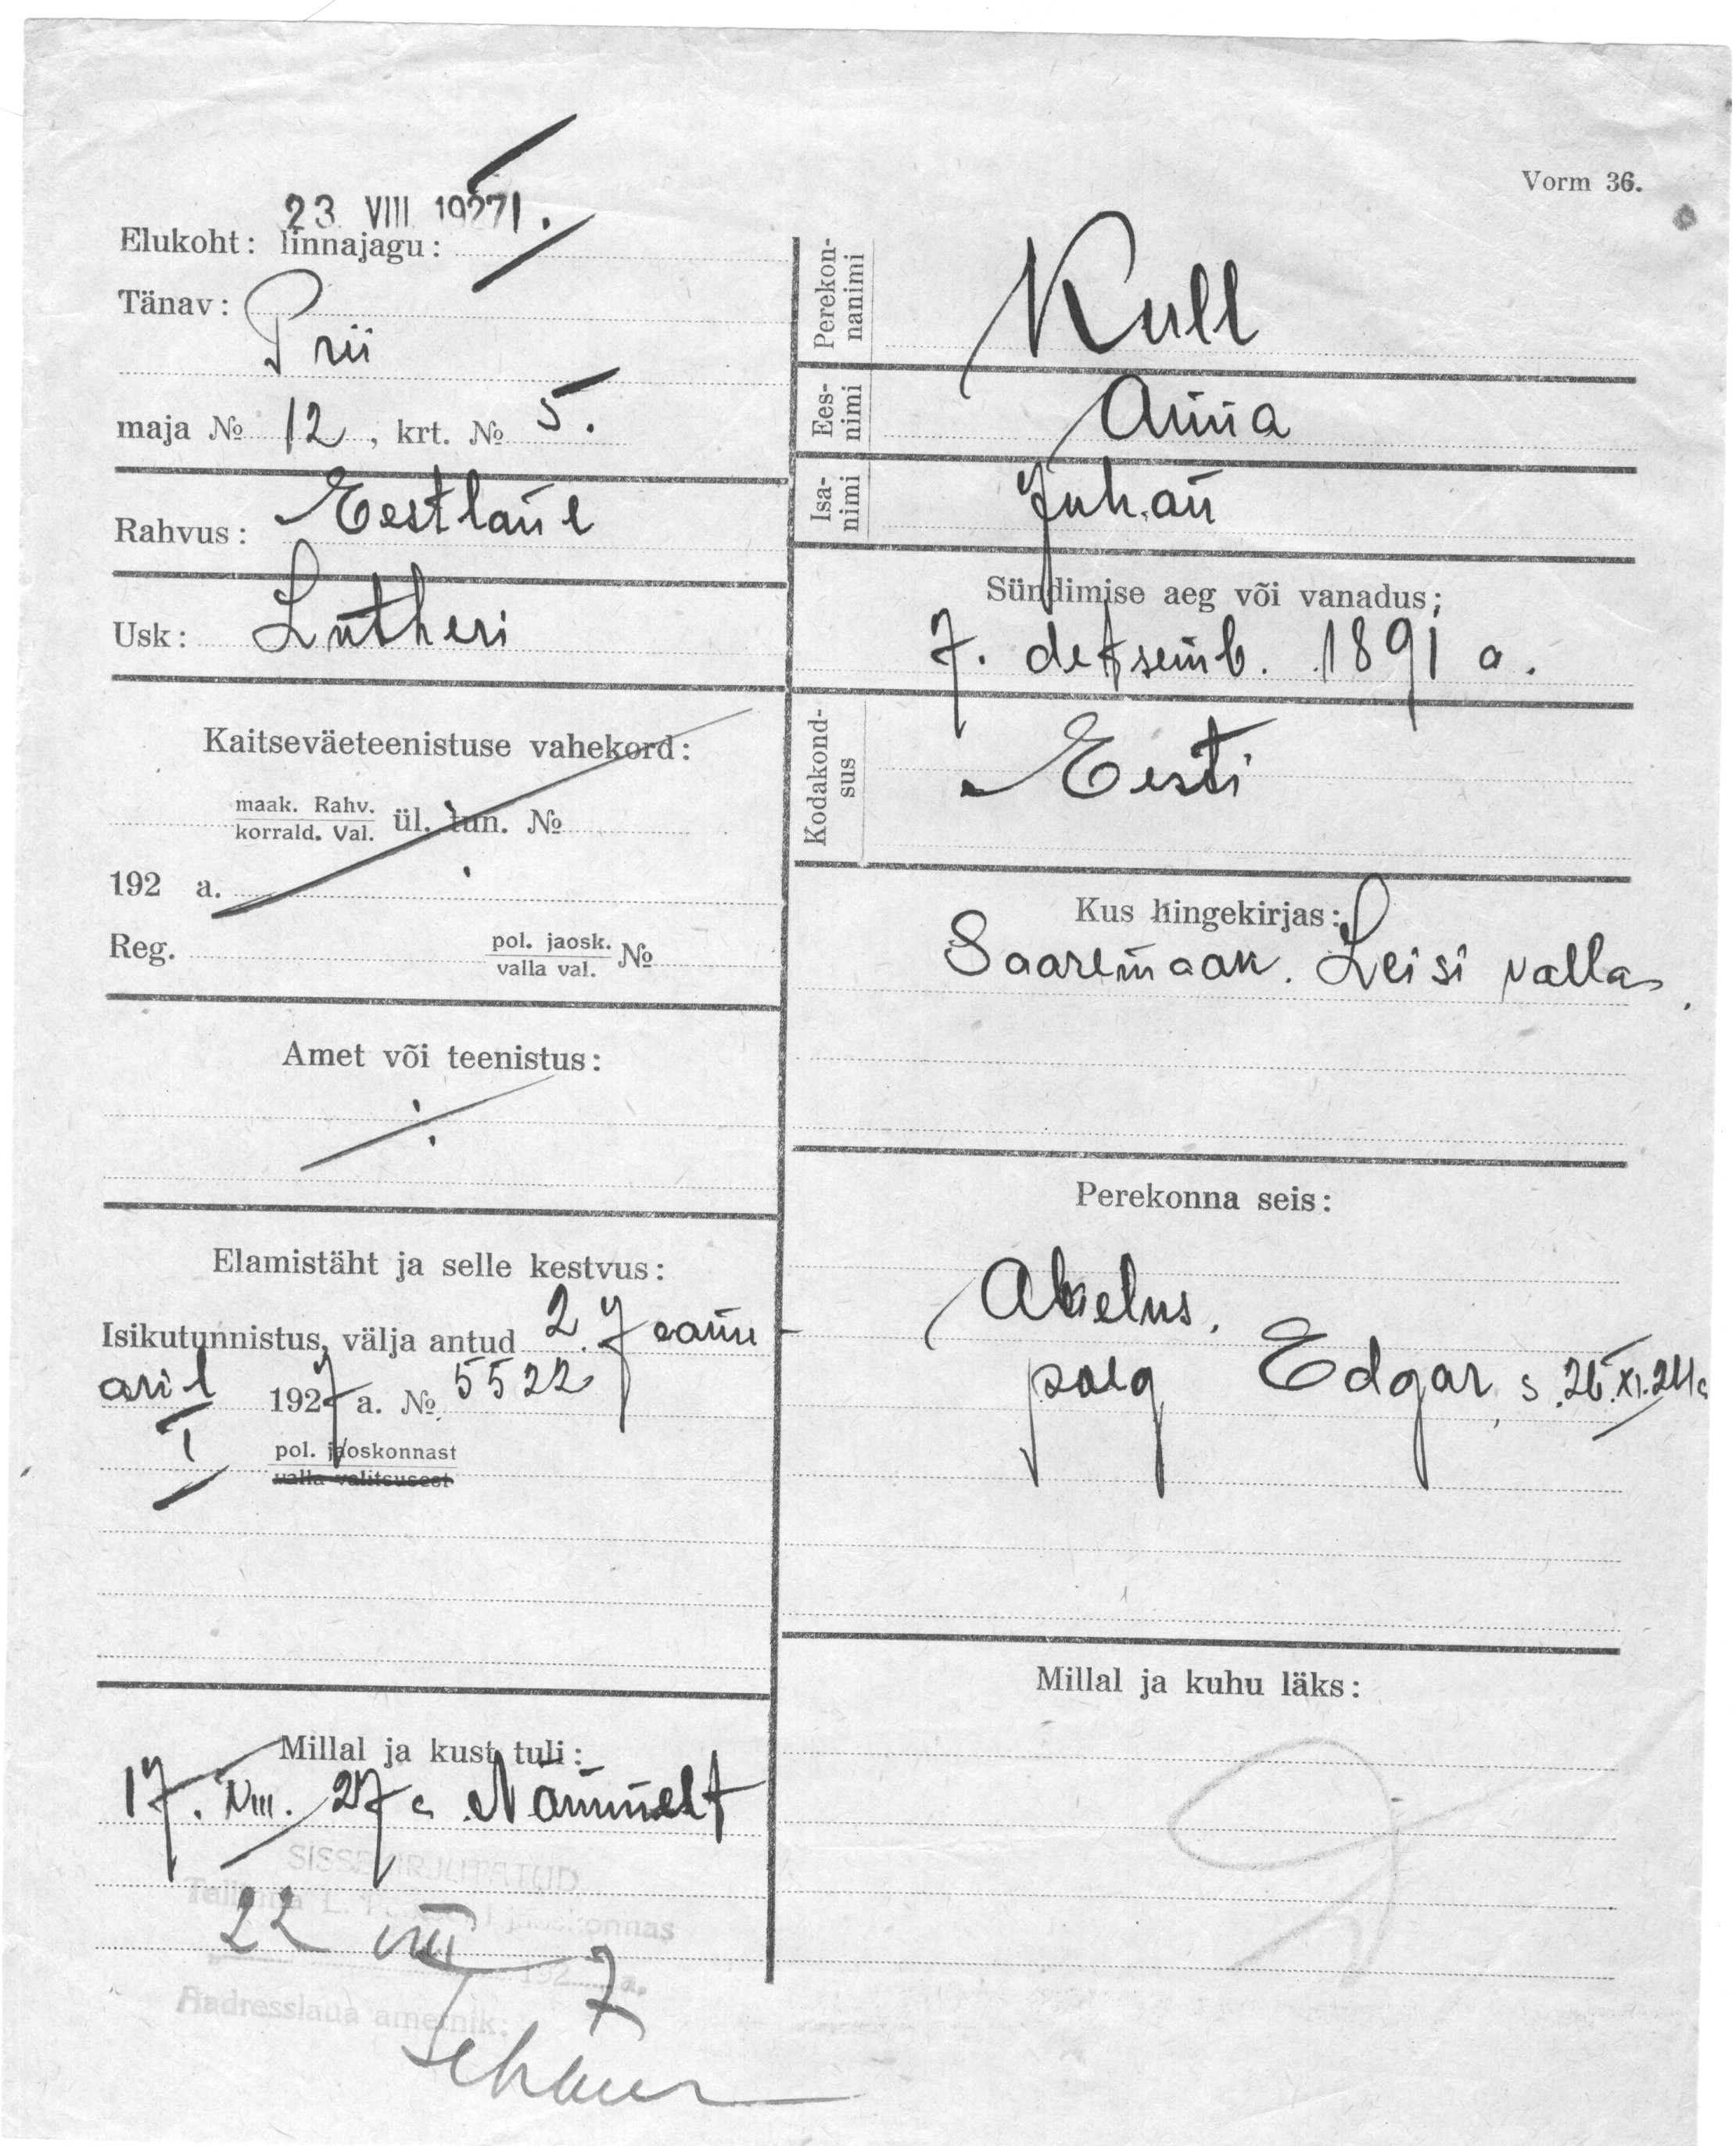 Vorm 36.
23. VIII 1927
Elukoht: linnajagu: I.
Tänav: Prii
maja № 12, krt. № 5.
Rahvus: Eestlane
Usk: Lutheri
Kaitseväeteenistuse vahekord:
maak. Rahv.
korrald. Val. ül. tun. №
192 a.
Reg. pol. jaosk.
valla val. №
Amet või teenistus:
Elamistäht ja selle kestvus:
Isikutunnistus, välja antud 2. jaanu-
aril 1927 a. № 5522
I pol. jaoskonnast
valla valitsusest
Millal ja kust tuli:
17. VIII. 27 a Nõmmelt
SISSEKIRJUTATUD
Tallinna L. jaoskonnas
22 VIII 192 7 a.
Aadresslaua ametnik:
Perekon-
nanimi Kull
Ees-
nimi Anna
Isa-
nimi Juhan
Sündimise aeg või vanadus:
7. detsemb. 1891 a.
Kodakond-
sus Eesti
Kus hingekirjas:
Saaremaak. Leisi vallas.
Perekonna seis:
Abielus.
poeg Edgar, s. 26.XI.24 a
Millal ja kuhu läks: